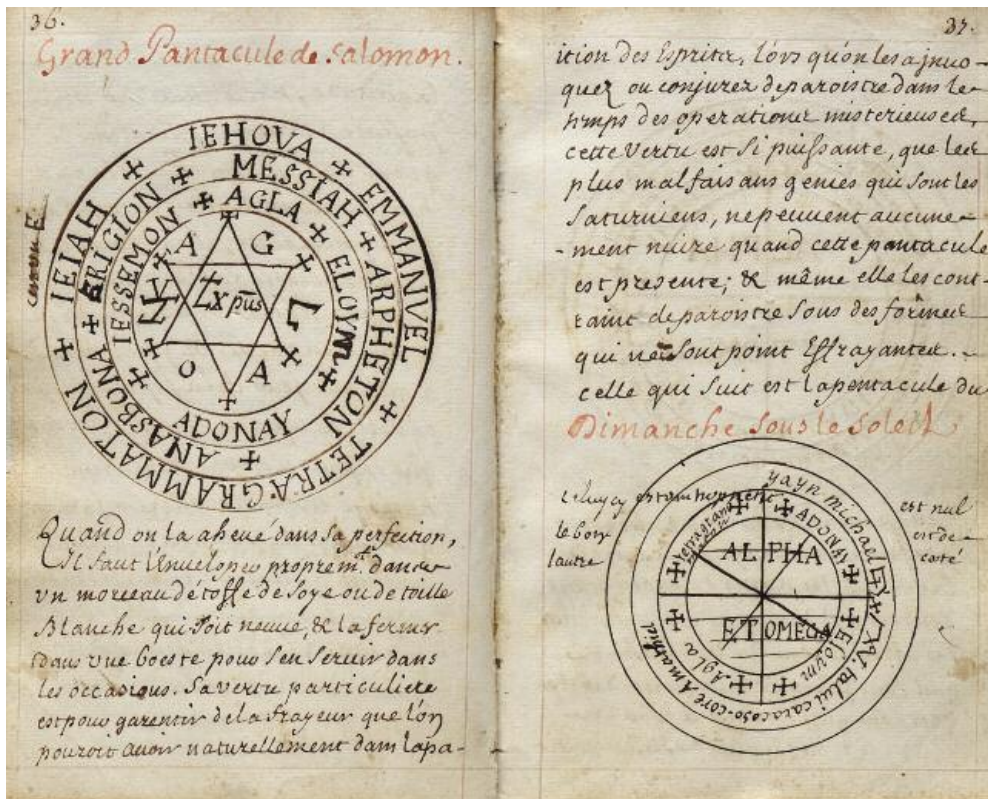 36.
Grand Pantacule de Salomon.
IEHOVA + EMMANVEL + TETRAGRAMMATON + IEIAH +
MESSIAH + ARPHETON + ANASBONA + ERIGION +
AGLA + ELOYM + ADONAY + IESSEMON +
A G L A O N
Xpūs
Quand on la achevé dans sa perfection,
Il faut l'Enveloper proprem.t dans
vn morceau d'étoffe de Soye ou de toille
Blanche qui soit neuve, & la fermer
dans vne boeste pour s'en servir dans
les occasions. Sa vertu particuliere
est pour garentir de la frayeur que l'on
pouroit avoir naturellement dans lapa-
37.
ition des Esprits, lors qu'on les a jnvo-
quez ou conjurez de paroistre dans le
temps des operations misterieuses,
cette vertu est si puissante, que les
plus malfaisans genies qui sont les
Saturniens, ne peuvent aucune-
-ment nuire quand cette pantacule
est presente; & même elle les cont-
raint de paroistre sous des formes
qui ne sont point Effrayantes.
celle qui suit est la pentacule du
Dimanche sous le Soleil
est nul
le bon
lautre
coté
yayn michael
ADONAY
Eloym
Agla
ALPHA
ET OMEGA